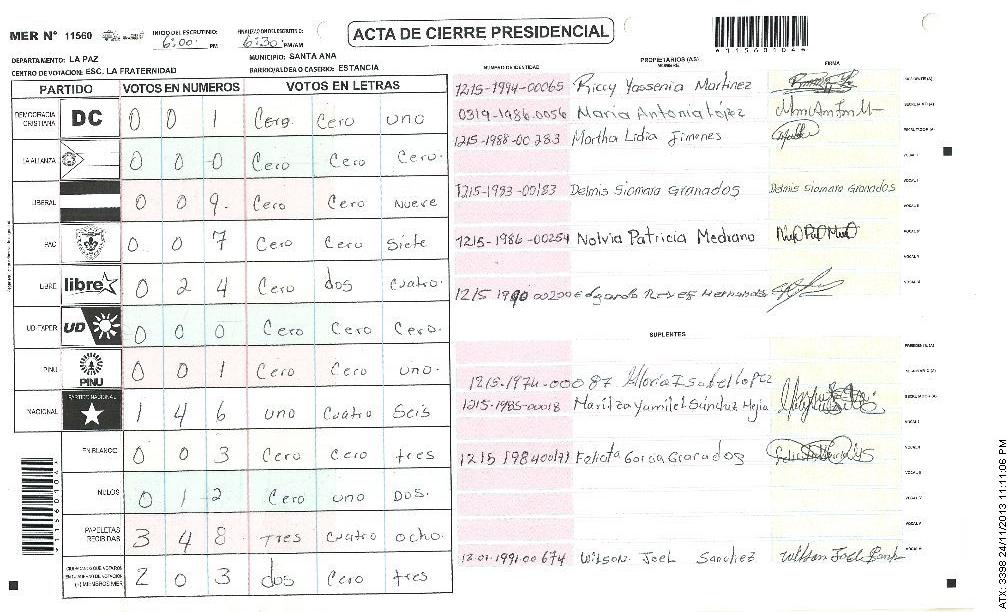 MER N° 11560
INICIO DEL ESCRUTINIO: 6:00 PM
FINALIZACION DEL ESCRUTINIO: 6:30 PM/AM
ACTA DE CIERRE PRESIDENCIAL
115601046
DEPARTAMENTO: LA PAZ
MUNICIPIO: SANTA ANA
CENTRO DE VOTACION: ESC. LA FRATERNIDAD
BARRIO/ALDEA O CASERIO: ESTANCIA
PARTIDO VOTOS EN NUMEROS VOTOS EN LETRAS
DEMOCRACIA CRISTIANA DC 0 0 1 Cero Cero uno
LA ALIANZA 0 0 0 Cero Cero Cero.
LIBERAL 0 0 9. Cero Cero Nueve
PAC 0 0 7 Cero Cero Siete
LIBRE libre 0 2 4 Cero dos cuatro.
UD-FAPER UD 0 0 0 Cero Cero Cero.
PINU PINU 0 0 1 Cero Cero uno.
NACIONAL PARTIDO NACIONAL 1 4 6 uno Cuatro Seis
EN BLANCO 0 0 3 Cero Cero tres
NULOS 0 1 2 Cero uno Dos.
PAPELETAS RECIBIDAS 3 4 8 Tres cuatro ocho
2 0 3 dos Cero tres
NUMERO DE IDENTIDAD
PROPIETARIOS (AS)
NOMBRE
FIRMA
1215-1994-00065 Riccy Yassenia Martinez
0319-1986.0056 Maria Antonia López
1215-1988-00283 Martha Lidia Jimenes
1215-1983-00183 Delmis Siomara Granados Delmis Siomara Granados
1215-1986-00254 Nolvia Patricia Medrano
1215 1990 00200 Edgardo Reyes Hernandez
SUPLENTES
1215-1974-00087 Gloria Isabel Lopez
1215-1985-00018 Maritza Yamilet Sánduz Mejia
1215 1984 00191 Felicita Garcia Granados
12-01-1991-00674 Wilson Joel Sanchez
ATX: 3398 24/11/2013 11:11:06 PM